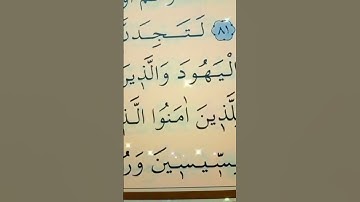 ﴿٨١﴾ لَتَجِدَنَّ
الْيَهُودَ وَالَّذِينَ
لِلَّذِينَ اٰمَنُوا الَّذ
قِسِّيسِينَ وَرُ